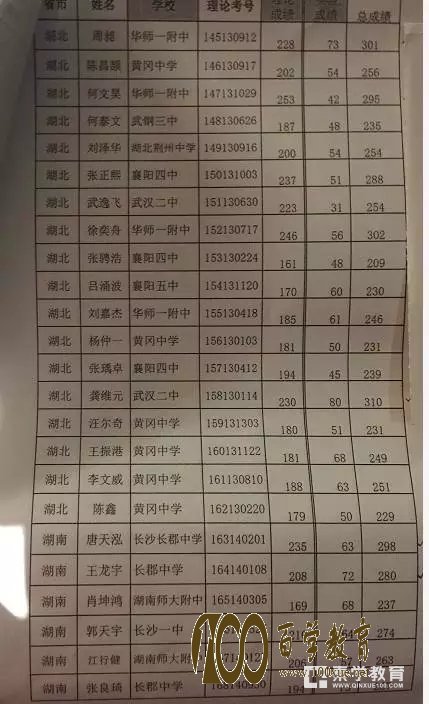 省市 姓名 学校 理论考号 理论成绩 成绩 总成绩
湖北 周昶 华师一附中 145130912 228 73 301
湖北 陈昌颢 黄冈中学 146130917 202 54 256
湖北 何文昊 华师一附中 147131029 253 42 295
湖北 何泰文 武钢三中 148130626 187 48 235
湖北 刘泽华 湖北荆州中学 149130916 200 54 254
湖北 张正熙 襄阳四中 150131003 237 51 288
湖北 武逸飞 武汉二中 151130630 223 31 254
湖北 徐奕舟 华师一附中 152130717 246 56 302
湖北 张骋浩 襄阳四中 153130224 161 48 209
湖北 吕涌波 襄阳五中 154131120 170 60 230
湖北 刘嘉杰 华师一附中 155130418 185 61 246
湖北 杨仲一 黄冈中学 156130103 181 50 231
湖北 张瑀卓 襄阳四中 157130412 194 45 239
湖北 龚维元 武汉二中 158130114 230 80 310
湖北 汪尔奇 黄冈中学 159131303 180 51 231
湖北 王振港 黄冈中学 160131122 181 68 249
湖北 李文威 黄冈中学 161130810 188 63 251
湖北 陈鑫 黄冈中学 162130220 179 50 229
湖南 唐天泓 长沙长郡中学 163140201 235 63 298
湖南 王龙宇 长郡中学 164140108 208 72 280
湖南 肖坤鸿 湖南师大附中 165140305 169 68 237
湖南 郭天宇 长沙一中 274
湖南 江行健 湖南师大附 206 57 263
湖南 张良琦 长郡中学 194
100 百学教育
www.100xue.net
亲学教育
WWW.QINXUE100.COM